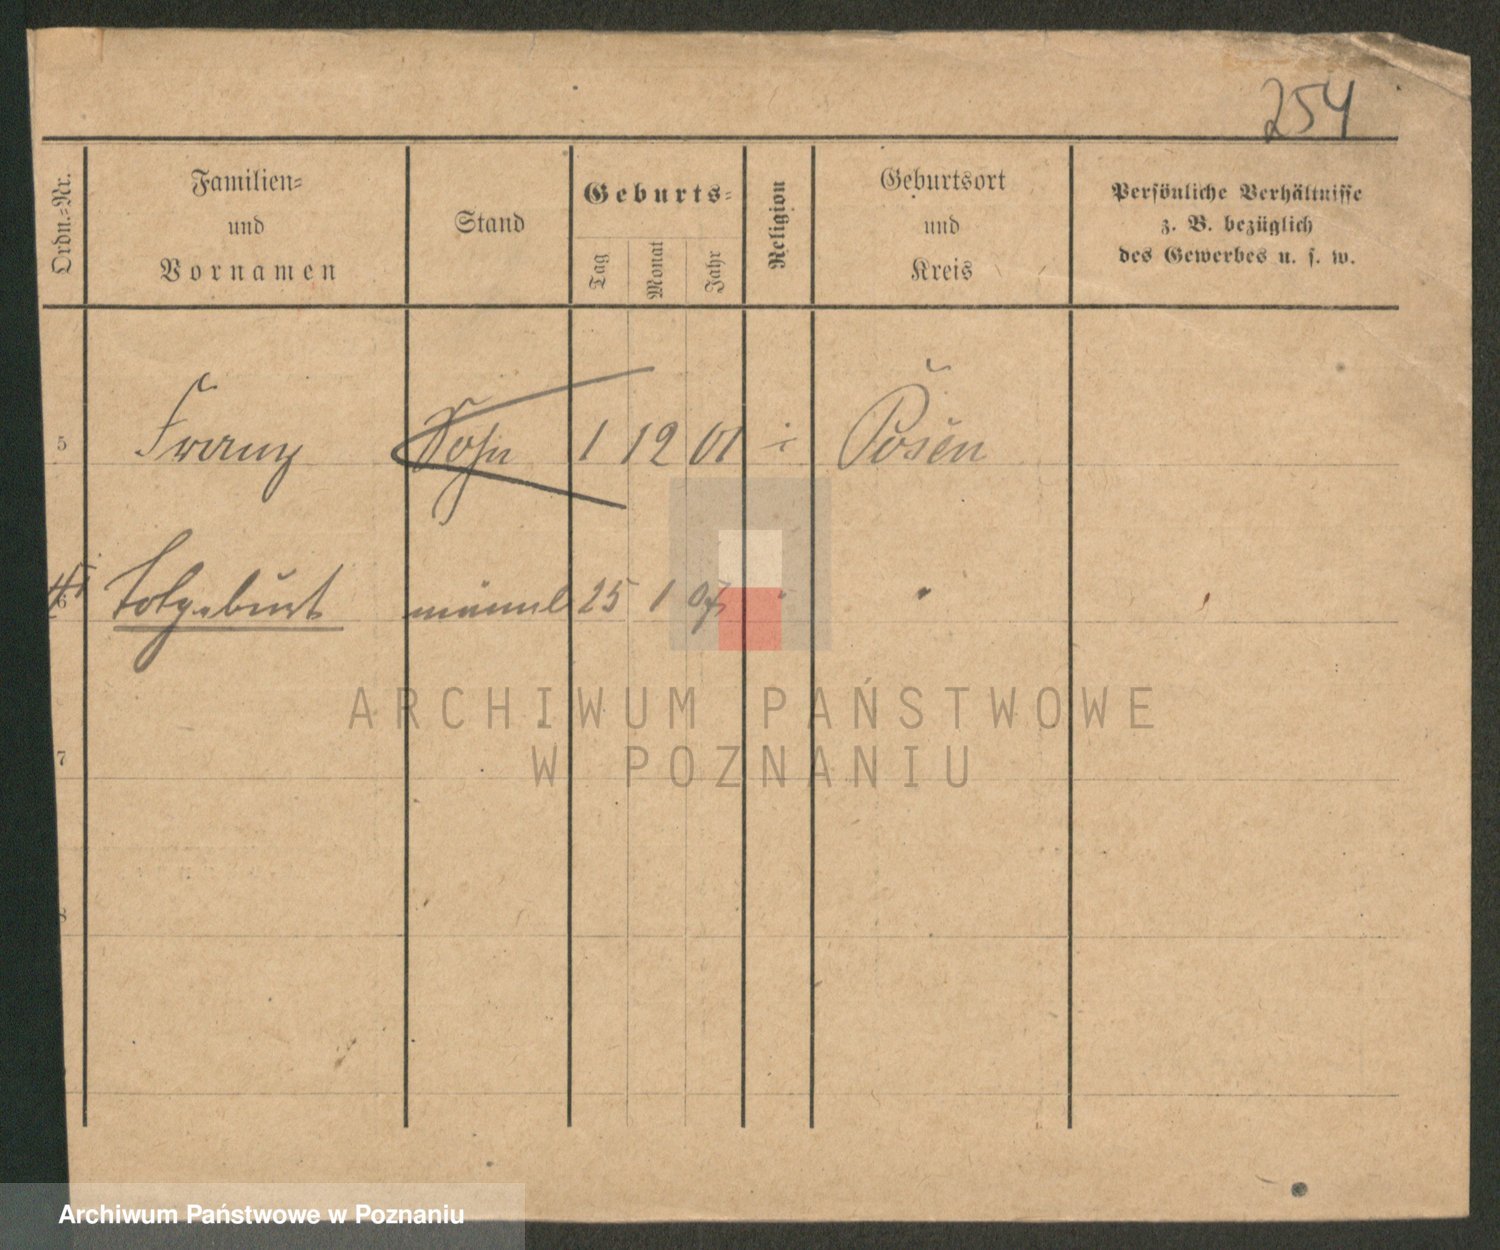 254
Ordn.-Nr.
Familien-
und
Vornamen
Stand
Geburts-
Tag
Monat
Jahr
Religion
Geburtsort
und
Kreis
Persönliche Verhältnisse
z. B. bezüglich
des Gewerbes u. s. w.
5 Franz Sohn 1 12 01 Posen
6 totgeburt männl 25 1 07 "
7
8
ARCHIWUM PAŃSTWOWE
W POZNANIU
Archiwum Państwowe w Poznaniu